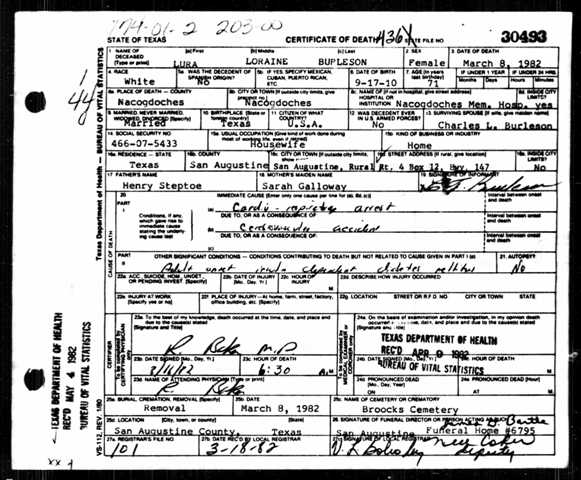 74-01-2 203-00
STATE OF TEXAS CERTIFICATE OF DEATH 436 STATE FILE NO. 30493
1. NAME OF DECEASED (Type or print) (a) First LURA (b) Middle LORAINE (c) Last BUPLESON 2. SEX Female 3. DATE OF DEATH March 8, 1982
4. RACE White 5a. WAS THE DECEDENT OF SPANISH ORIGIN? No 5b. IF YES, SPECIFY MEXICAN, CUBAN, PUERTO RICAN, ETC. 6. DATE OF BIRTH 9-17-10 7. AGE (In years last birthday) 71 IF UNDER 1 YEAR Months Days IF UNDER 24 HRS. Hours Min.
8a. PLACE OF DEATH — COUNTY Nacogdoches 8b. CITY OR TOWN (If outside city limits, give precinct no.) Nacogdoches 8c. NAME OF (If not in hospital, give street address) HOSPITAL OR INSTITUTION Nacogdoches Mem. Hosp. 8d. INSIDE CITY LIMITS? yes
9. MARRIED, NEVER MARRIED, WIDOWED, DIVORCED (Specify) Married 10. BIRTHPLACE (State or foreign country) Texas 11. CITIZEN OF WHAT COUNTRY? U.S.A. 12. WAS DECEDENT EVER IN U.S. ARMED FORCES? No 13. SURVIVING SPOUSE (If wife, give maiden name) Charles L. Burleson
14. SOCIAL SECURITY NO. 466-07-5433 15a. USUAL OCCUPATION (Give kind of work done during most of working life, even if retired) Housewife 15b. KIND OF BUSINESS OR INDUSTRY Home
16a. RESIDENCE — STATE Texas 16b. COUNTY San Augustine 16c. CITY OR TOWN (If outside city limits, San Augustine, Rural 16d. STREET ADDRESS (If rural, give location) Rt. 4 Box 12, Hwy. 147 16e. INSIDE CITY LIMITS? No
17. FATHER'S NAME Henry Steptoe 18. MOTHER'S MAIDEN NAME Sarah Galloway 19. SIGNATURE OF INFORMANT Burleson
20. PART I IMMEDIATE CAUSE (Enter only one cause per line for (a), (b), and (c).) Interval between onset and death
Conditions, if any, which gave rise to immediate cause stating the underlying cause last
(a) Cardio-respiratory arrest
DUE TO, OR AS A CONSEQUENCE OF: Interval between onset and death
(b) Cerebrovascular accident
DUE TO, OR AS A CONSEQUENCE OF: Interval between onset and death
(c)
PART II OTHER SIGNIFICANT CONDITIONS — CONDITIONS CONTRIBUTING TO DEATH BUT NOT RELATED TO CAUSE GIVEN IN PART I (a) 21. AUTOPSY? No
Adult onset insulin dependent diabetes mellitus
22a. ACC., SUICIDE, HOM., UNDET., OR PENDING INVEST. (Specify) 22b. DATE OF INJURY (Mo., Day, Yr.) 22c. HOUR OF INJURY M 22d. DESCRIBE HOW INJURY OCCURRED
22e. INJURY AT WORK (Specify yes or no) 22f. PLACE OF INJURY—At home, farm, street, factory, office building, etc. (Specify) 22g. LOCATION STREET OR R.F.D. NO. CITY OR TOWN STATE
23a. To the best of my knowledge, death occurred at the time, date, and place and due to the cause(s) stated (Signature and Title) M.D
24a. On the basis of examination and/or investigation, in my opinion death occurred at the time, date, and place and due to the cause(s) stated (Signature and Title)
TEXAS DEPARTMENT OF HEALTH
REC'D APR 9 1982
BUREAU OF VITAL STATISTICS
23b. DATE SIGNED (Mo., Day, Yr.) 3/16/82 23c. HOUR OF DEATH 6:30 A.M. 24b. DATE SIGNED 24c. HOUR OF DEATH
23d. NAME OF ATTENDING PHYSICIAN (Type or print) 24d. PRONOUNCED DEAD (Mo., Day, Year) 24e. PRONOUNCED DEAD (Hour)
25a. BURIAL, CREMATION, REMOVAL (Specify) Removal 25b. DATE March 8, 1982 25c. NAME OF CEMETERY OR CREMATORY Broocks Cemetery
25d. LOCATION (City, town, or county) (State) San Augustine County, Texas 26. SIGNATURE OF FUNERAL DIRECTOR OR PERSON ACTING AS SUCH San Augustine Funeral Home #6795
27a. REGISTRAR'S FILE NO. 101 27b. DATE REC'D BY LOCAL REGISTRAR 3-18-82 27c. SIGNATURE OF LOCAL REGISTRAR Deputy
Texas Department of Health — BUREAU OF VITAL STATISTICS
VS-112, REV. 1/80
CAUSE OF DEATH
CERTIFIER
TEXAS DEPARTMENT OF HEALTH
REC'D MAY 4 1982
BUREAU OF VITAL STATISTICS